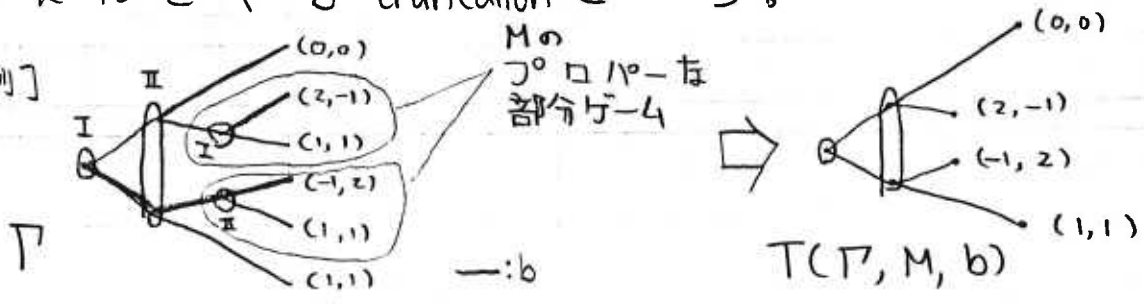 truncation
例]
I
II
(0,0)
(2,-1)
I
(1,1)
(-1,2)
II
(1,1)
(1,1)
Γ
—:b
Mの
プロパーな
部分ゲーム
(0,0)
(2,-1)
(-1,2)
(1,1)
T(Γ, M, b)